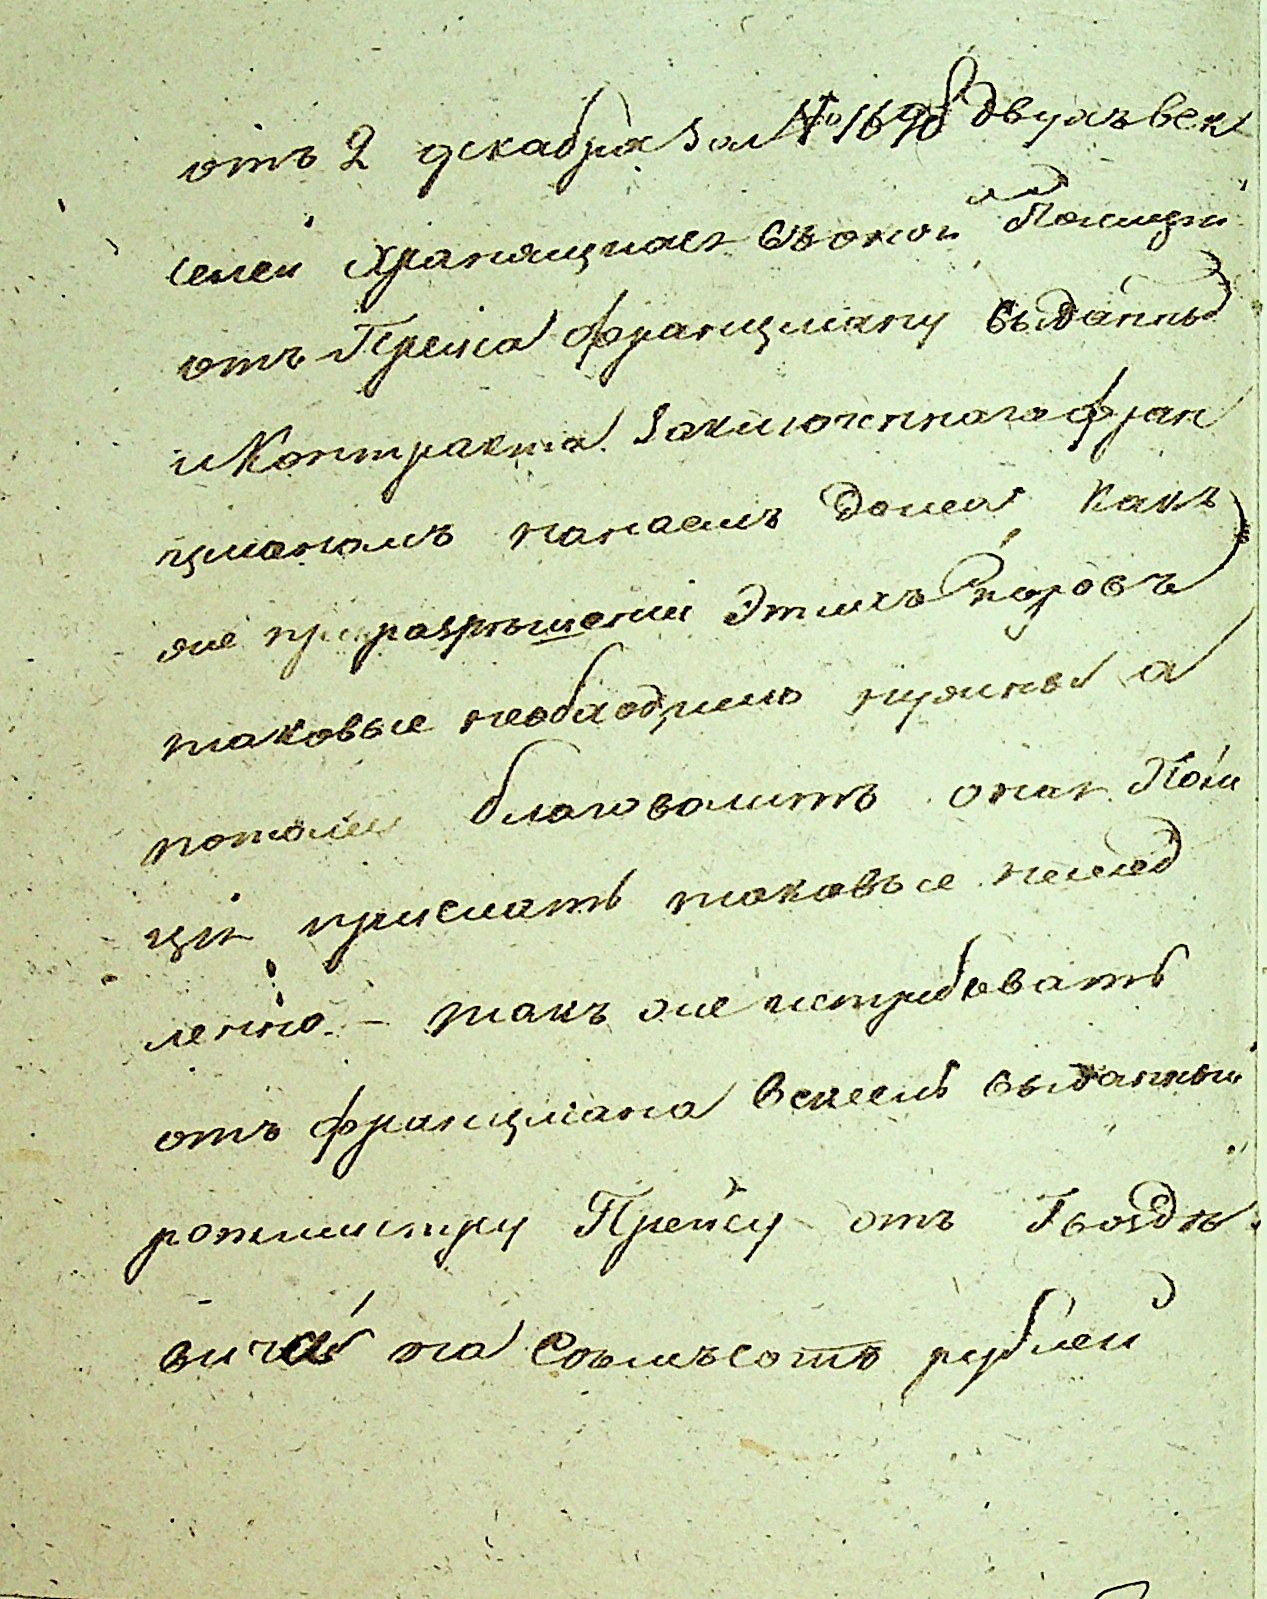 отъ 2 декабря за № 1698 двухъ век
селей хранящихся въ оной Полиціи
отъ Прейса Францману выданныхъ
и Контракта заключеннаго Фран
цманомъ на наемъ дома, какъ
же при разрѣшеніи этихъ споровъ
таковые необходимо нужны а
потому благоволитъ оная Поли
ція прислать таковые немед
ленно – такъ же истребовать
отъ Францмана вексель выданный
ротмистру Прейсу отъ Гвозде
вича на семьсотъ рублей